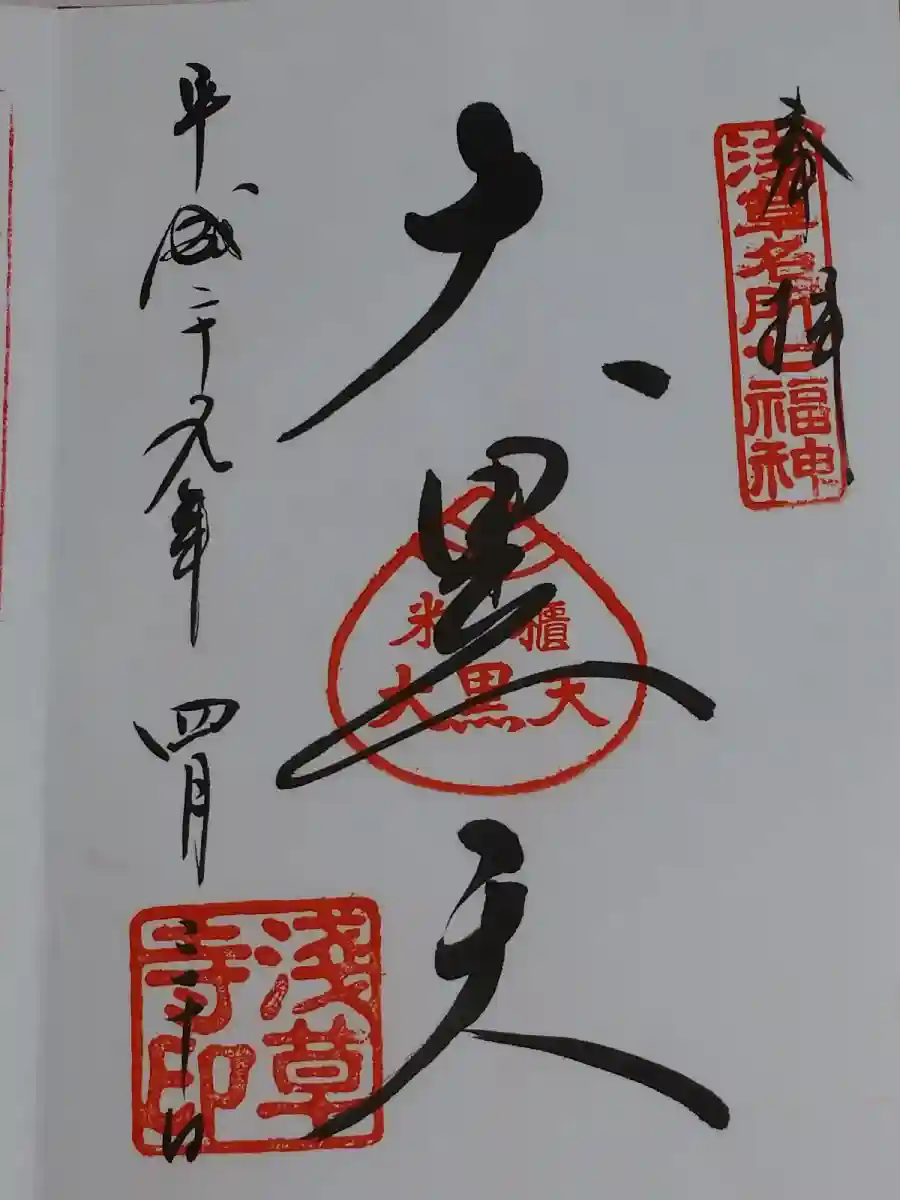 奉拝
浅草名所七福神
大黒天
米櫃
大黒天
平成二十九年 四月 三十日
淺草
寺印